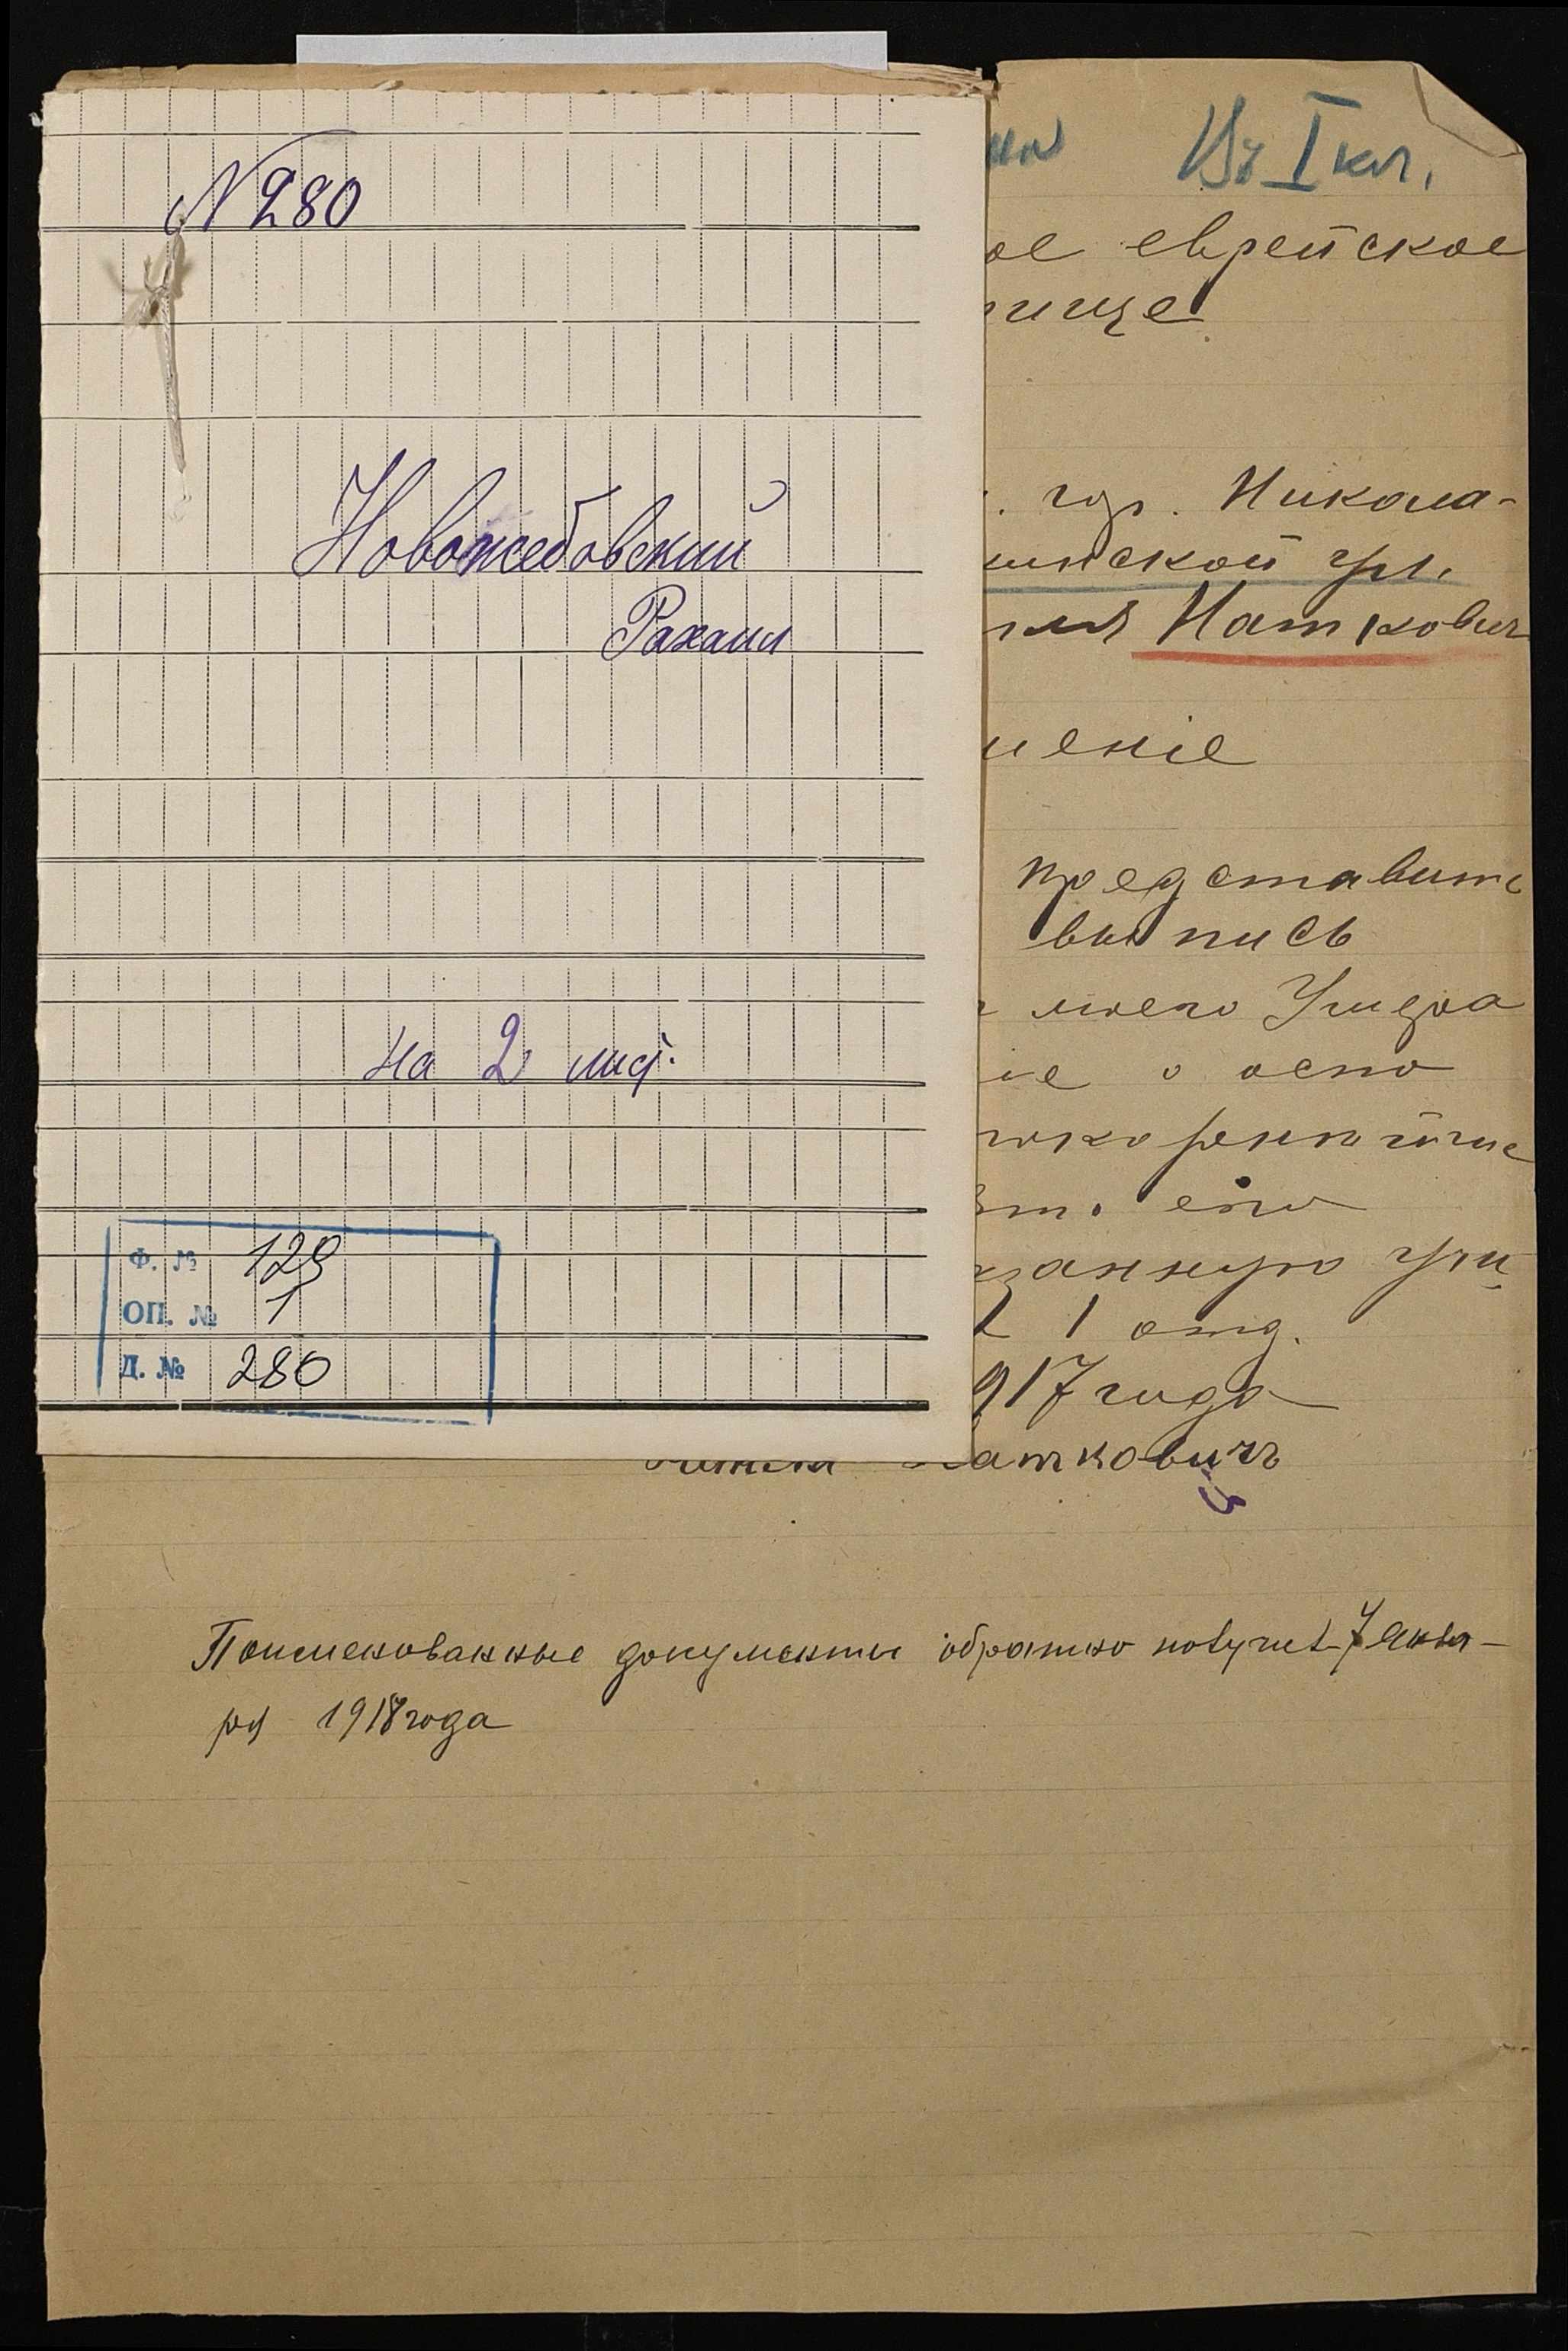 № 280
Новожебовский
Рахаил
на 2 лист.
Ф. № 129
ОП. № 1
Д. № 280
Въ I кл.
ое еврейское
ище
гор. Никола-
минской губ.
Наткович
шеніе
представить
выпись
моего Ушера
іе о оспо
его
занную учи
1 отд.
917 года
Наткович
Поименованные документы обратно получил 7 Янва-
ря 1918 года